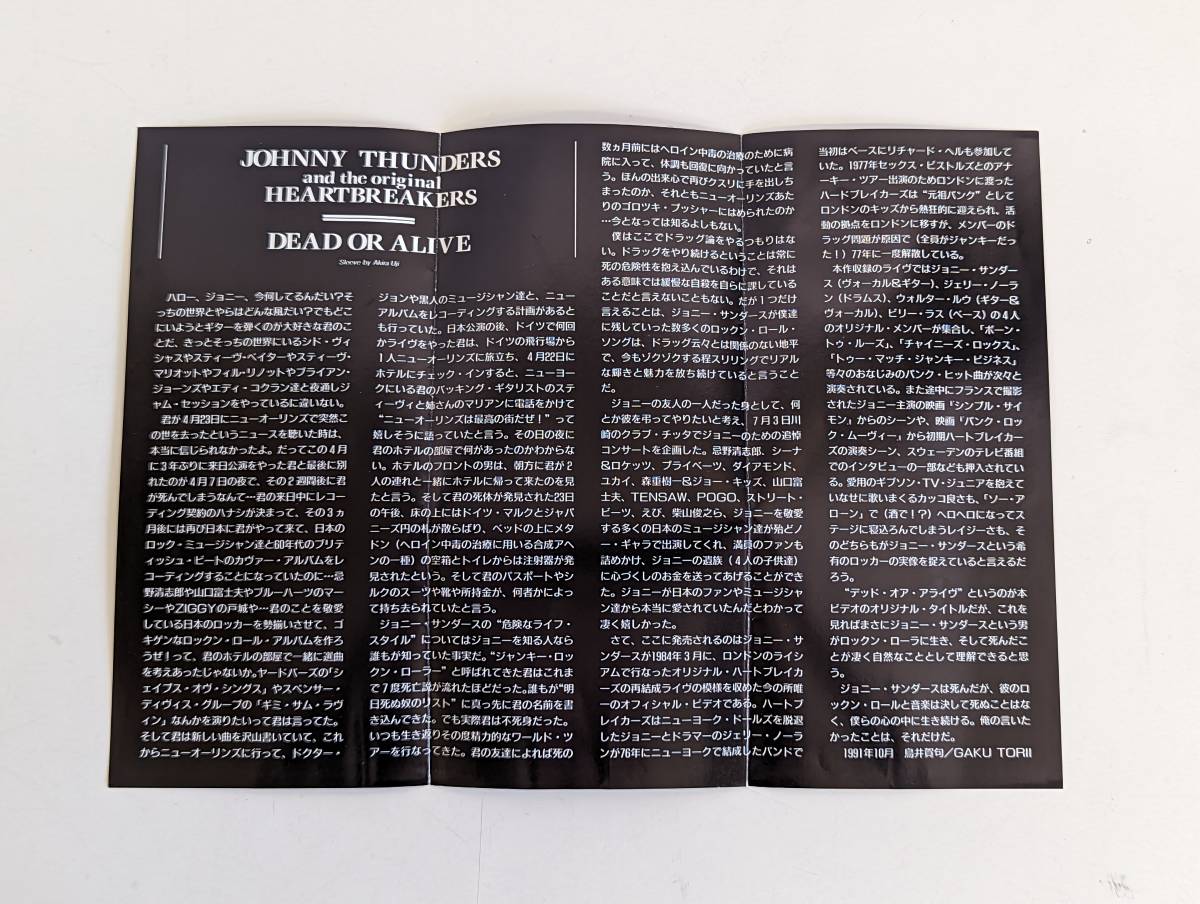 JOHNNY THUNDERS
and the original
HEARTBREAKERS
DEAD OR ALIVE
Sleeve by Akira Uji
ハロー、ジョニー、今何してるんだい?そ
っちの世界とやらはどんな風だい?でもどこ
にいようとギターを弾くのが大好きな君のこ
とだ、きっとそっちの世界にいるシド・ヴィ
シャスやスティーヴ・ベイターやスティーヴ・
マリオットやフィル・リノットやブライアン・
ジョーンズやエディ・コクラン達と夜通しジ
ャム・セッションをやっているに違いない。
君が4月23日にニューオーリンズで突然こ
の世を去ったというニュースを聴いた時は、
本当に信じられなかったよ。だってこの4月
に3年ぶりに来日公演をやった君と最後に別
れたのが4月7日の夜で、その2週間後に君
が死んでしまうなんて…君の来日中にレコー
ディング契約のハナシが決まって、その3ヵ
月後には再び日本に君がやって来て、日本の
ロック・ミュージシャン達と60年代のブリテ
ィッシュ・ビートのカヴァー・アルバムをレ
コーディングすることになっていたのに…忌
野清志郎や山口富士夫やブルーハーツのマー
シーやZIGGYの戸城や…君のことを敬愛
している日本のロッカーを勢揃いさせて、ゴ
キゲンなロックン・ロール・アルバムを作ろ
うぜ!って、君のホテルの部屋で一緒に選曲
を考えあったじゃないか。ヤードバーズの「シ
ェイプス・オヴ・シングス」やスペンサー・
ディヴィス・グループの「ギミ・サム・ラヴ
ィン」なんかを演りたいって君は言ってた。
そして君は新しい曲を沢山書いていて、これ
からニューオーリンズに行って、ドクター・
ジョンや黒人のミュージシャン達と、ニュー
アルバムをレコーディングする計画があると
も行っていた。日本公演の後、ドイツで何回
かライヴをやった君は、ドイツの飛行場から
1人ニューオーリンズに旅立ち、4月22日に
ホテルにチェック・インすると、ニューヨー
クにいる君のバッキング・ギタリストのステ
ィーヴィと姉さんのマリアンに電話をかけて
“ニューオーリンズは最高の街だぜ!”って
嬉しそうに語っていたと言う。その日の夜に
君のホテルの部屋で何があったのかわからな
い。ホテルのフロントの男は、朝方に君が2
人の連れと一緒にホテルに帰って来たのを見
たと言う。そして君の死体が発見された23日
の午後、床の上にはドイツ・マルクとジャパ
ニーズ円の札が散らばり、ベッドの上にメタ
ドン(ヘロイン中毒の治療に用いる合成アヘ
ンの一種)の空箱とトイレからは注射器が発
見されたという。そして君のパスポートやシ
ルクのスーツや靴や所持金が、何者かによっ
て持ち去られていたと言う。
ジョニー・サンダースの“危険なライフ・
スタイル”についてはジョニーを知る人なら
誰もが知っていた事実だ。“ジャンキー・ロッ
クン・ローラー”と呼ばれてきた君はこれま
で7度死亡説が流れたほどだった。誰もが“明
日死ぬ奴のリスト”に真っ先に君の名前を書
き込んできた。でも実際君は不死身だった。
いつも生き返りその度精力的なワールド・ツ
アーを行なってきた。君の友達によれば死の
数ヵ月前にはヘロイン中毒の治療のために病
院に入って、体調も回復に向かっていたと言
う。ほんの出来心で再びクスリに手を出しち
まったのか、それともニューオーリンズあた
りのゴロツキ・プッシャーにはめられたのか
…今となっては知るよしもない。
僕はここでドラッグ論をやるつもりはな
い。ドラッグをやり続けるということは常に
死の危険性を抱え込んでいるわけで、それは
ある意味では緩慢な自殺を自らに課している
ことだと言えないこともない。だが1つだけ
言えることは、ジョニー・サンダースが僕達
に残していった数多くのロックン・ロール・
ソングは、ドラッグ云々とは関係のない地平
で、今もゾクゾクする程スリリングでリアル
な輝きと魅力を放ち続けていると言うこと
だ。
ジョニーの友人の一人だった身として、何
とか彼を弔ってやりたいと考え、7月3日川
崎のクラブ・チッタでジョニーのための追悼
コンサートを企画した。忌野清志郎、シーナ
&ロケッツ、プライベーツ、ダイアモンド、
ユカイ、森重樹一&ジョー・キッズ、山口富
士夫、TENSAW、POGO、ストリート・
ビーツ、えび、柴山俊之ら、ジョニーを敬愛
する多くの日本のミュージシャン達が殆どノ
ー・ギャラで出演してくれ、満員のファンも
詰めかけ、ジョニーの遺族(4人の子供達)
に心づくしのお金を送ってあげることができ
た。ジョニーが日本のファンやミュージシャ
ン達から本当に愛されていたんだとわかって
凄く嬉しかった。
さて、ここに発売されるのはジョニー・サ
ンダースが1984年3月に、ロンドンのライシ
アムで行なったオリジナル・ハートブレイカ
ーズの再結成ライヴの模様を収めた今の所唯
一のオフィシャル・ビデオである。ハートブ
レイカーズはニューヨーク・ドールズを脱退
したジョニーとドラマーのジェリー・ノーラ
ンが76年にニューヨークで結成したバンドで
当初はベースにリチャード・ヘルも参加して
いた。1977年セックス・ピストルズとのアナ
ーキー・ツアー出演のためロンドンに渡った
ハードブレイカーズは“元祖パンク”として
ロンドンのキッズから熱狂的に迎えられ、活
動の拠点をロンドンに移すが、メンバーのド
ラッグ問題が原因で(全員がジャンキーだっ
た!)77年に一度解散している。
本作収録のライヴではジョニー・サンダー
ス(ヴォーカル&ギター)、ジェリー・ノーラ
ン(ドラムス)、ウォルター・ルウ(ギター&
ヴォーカル)、ビリー・ラス(ベース)の4人
のオリジナル・メンバーが集合し、「ボーン・
トゥ・ルーズ」、「チャイニーズ・ロックス」、
「トゥー・マッチ・ジャンキー・ビジネス」
等々のおなじみのパンク・ヒット曲が次々と
演奏されている。また途中にフランスで撮影
されたジョニー主演の映画「シンプル・サイ
モン」からのシーンや、映画「パンク・ロッ
ク・ムーヴィー」から初期ハートブレイカー
ズの演奏シーン、スウェーデンのテレビ番組
でのインタビューの一部なども押入されてい
る。愛用のギブソン・TV・ジュニアを抱えて
いなせに歌いまくるカッコ良さも、「ソー・ア
ローン」で(酒で!?)ヘロヘロになってス
テージに寝込ろんでしまうレイジーさも、そ
のどちらもがジョニー・サンダースという希
有のロッカーの実像を捉えていると言えるだ
ろう。
“デッド・オア・アライヴ”というのが本
ビデオのオリジナル・タイトルだが、これを
見ればまさにジョニー・サンダースという男
がロックン・ローラに生き、そして死んだこ
とが凄く自然なこととして理解できると思
う。
ジョニー・サンダースは死んだが、彼のロ
ックン・ロールと音楽は決して死ぬことはな
く、僕らの心の中に生き続ける。俺の言いた
かったことは、それだけだ。
1991年10月 鳥井賀句/GAKU TORII